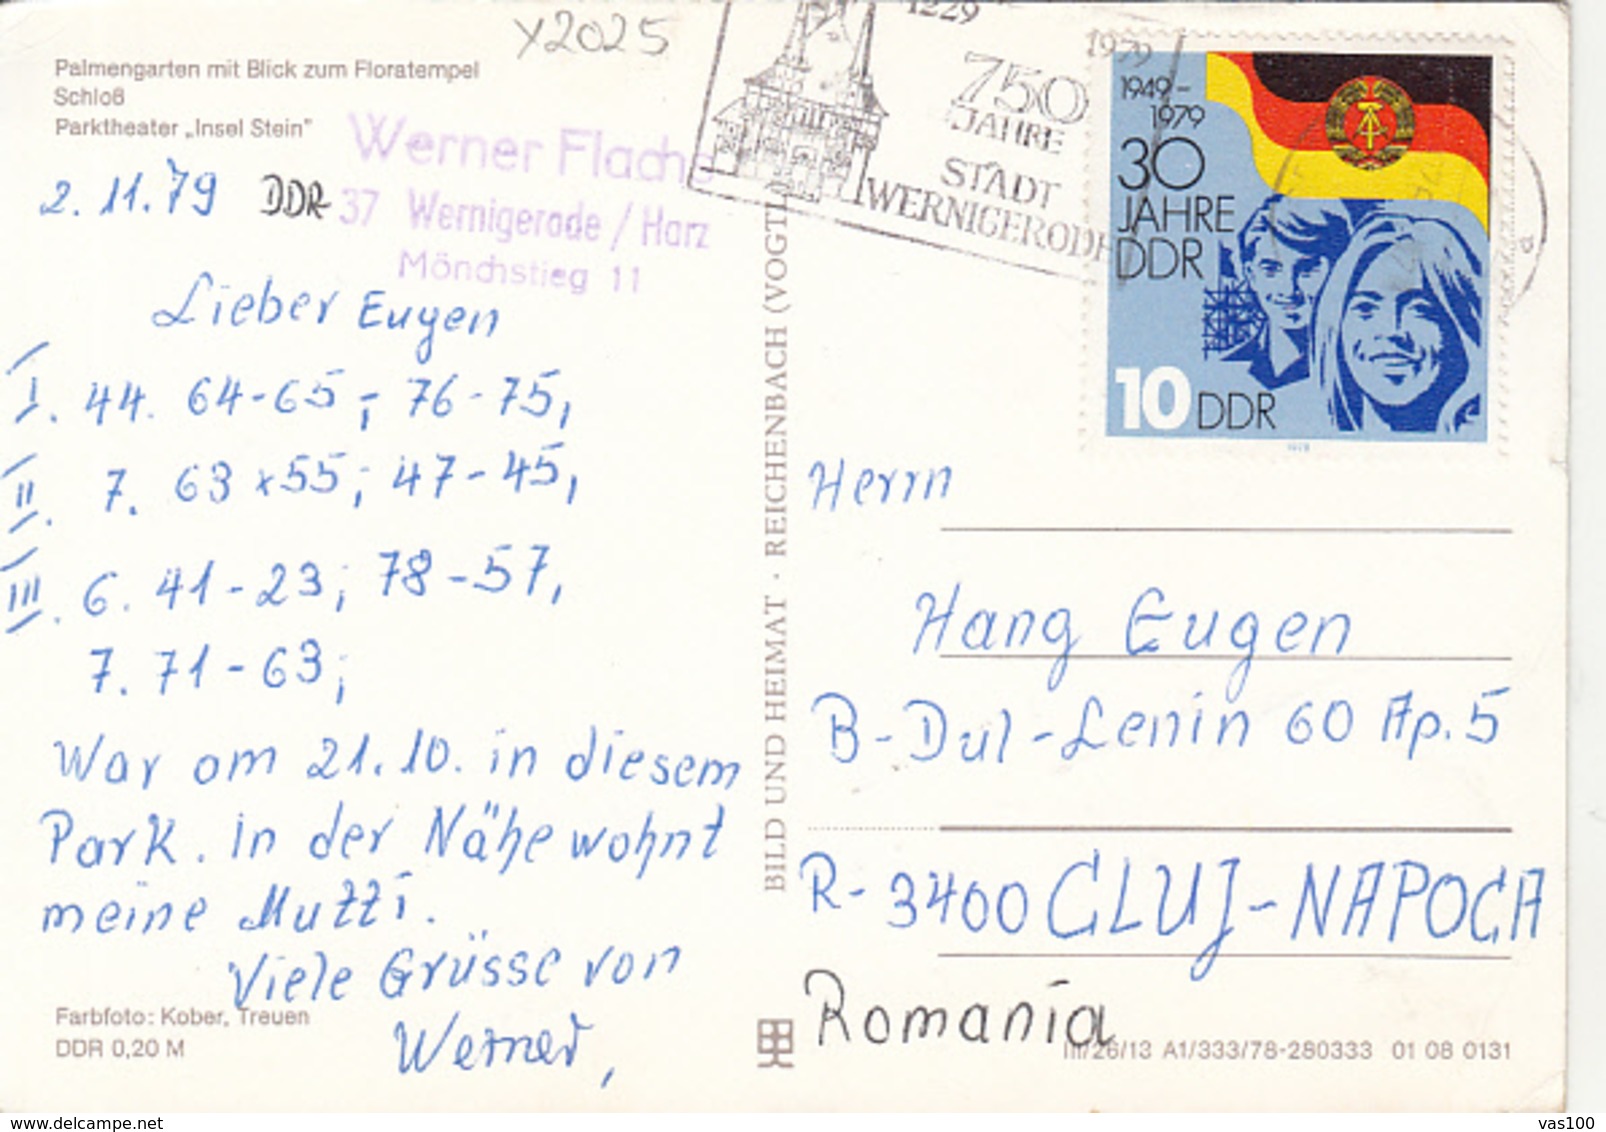 Y2025
Palmengarten mit Blick zum Floratempel
Schloß
Parktheater „Insel Stein"
2. 11. 79 DDR
Werner Flachs
37 Wernigerode / Harz
Mönchstieg 11
Lieber Eugen
I. 44. 64-65,- 76-75,
II. 7. 63x55; 47-45,
III. 6. 41-23; 78-57,
7. 71-63;
War am 21.10. in diesem
Park. in der Nähe wohnt
meine Mutti.
Viele Grüsse von
Werner,
Farbfoto: Kober, Treuen
DDR 0,20 M
BILD UND HEIMAT · REICHENBACH (VOGTL
1229
1979
750
JAHRE
STADT
WERNIGERODE
1949-
1979
30
JAHRE
DDR
10 DDR
1979
Herrn
Hang Eugen
B-Dul-Lenin 60 Ap. 5
R-3400 CLUJ-NAPOCA
Romania
III/26/13 A1/333/78-280333 01 08 0131
delcampe.net
vas100